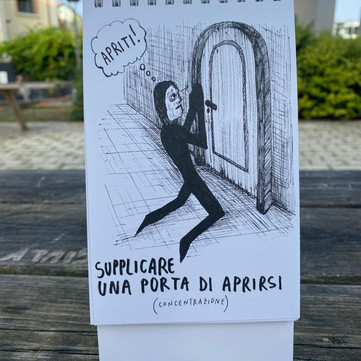 APRITI!
SUPPLICARE
UNA PORTA DI APRIRSI
(CONCENTRAZIONE)